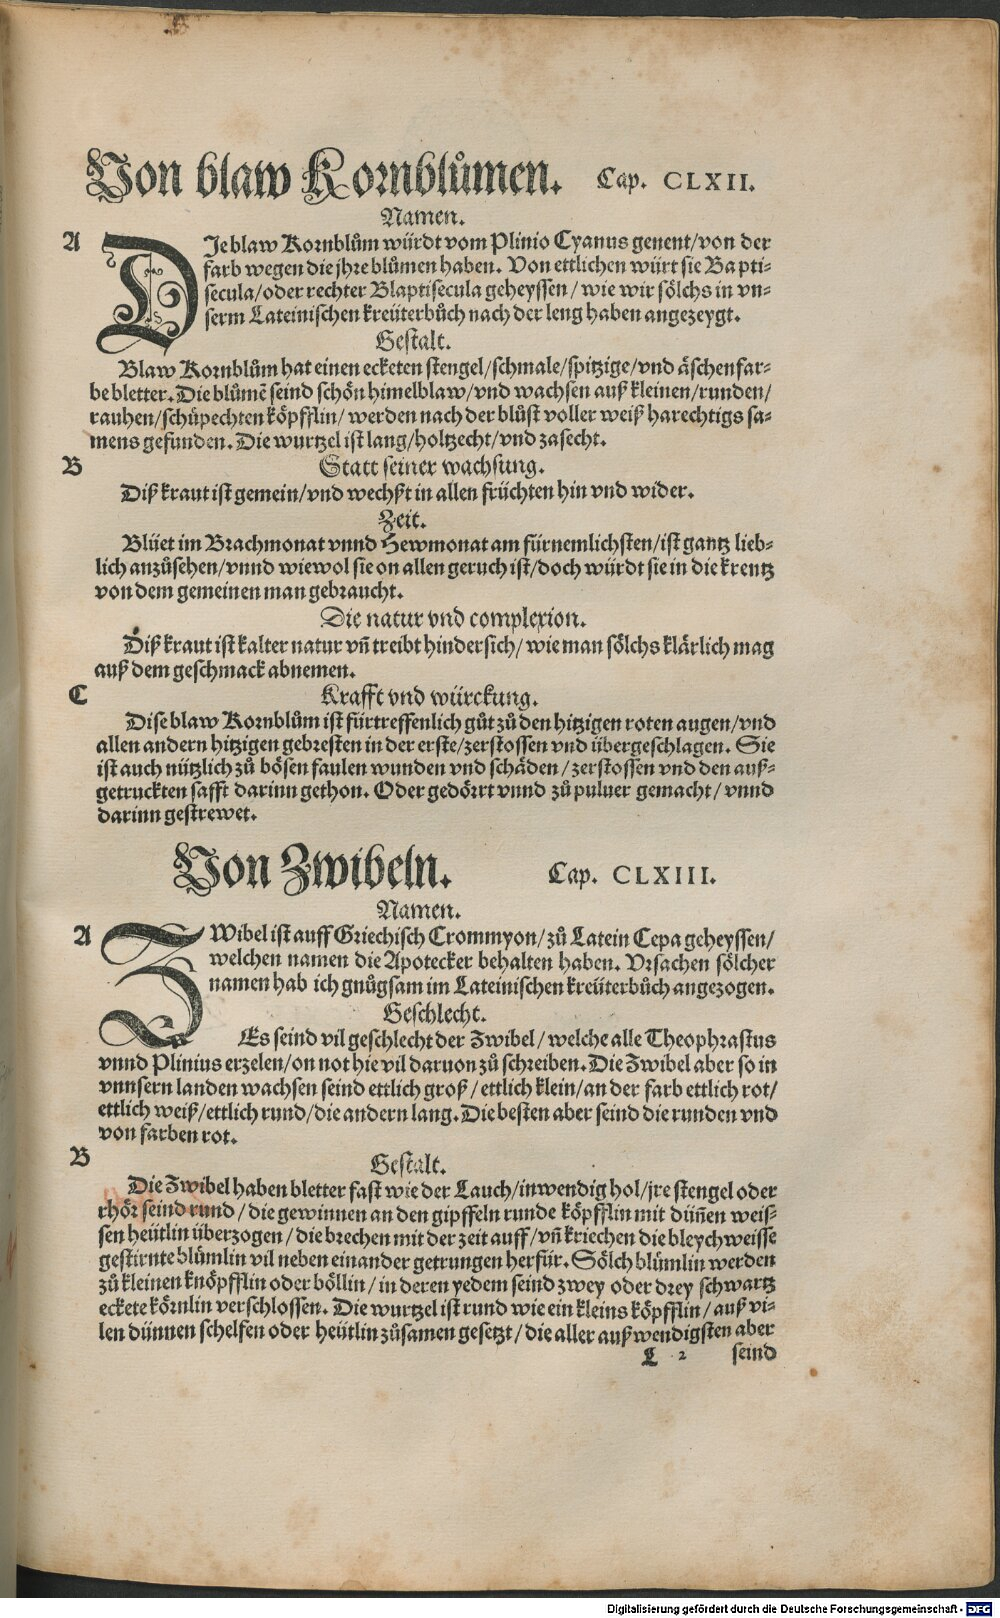 Von blaw Kornblůmen. Cap. CLXII.
Namen.
A DJe blaw Kornblům würdt vom Plinio Cyanus genent/von der
farb wegen die jhre blůmen haben. Von ettlichen würt sie Bapti-
secula/oder rechter Blaptisecula geheyssen/ wie wir sölchs in vn-
serm Lateinischen kreüterbůch nach der leng haben angezeygt.
Gestalt.
Blaw Kornblům hat einen ecketen stengel/schmale/spitzige/vnd äschenfar-
be bletter. Die blůmẽ seind schön himelblaw/vnd wachsen auß kleinen/runden/
rauhen/schüpechten köpfflin/ werden nach der blůst voller weiß harechtigs sa-
mens gefunden. Die wurtzel ist lang/holtzecht/vnd zasecht.
B Statt seiner wachsung.
Diß kraut ist gemein/vnd wechßt in allen früchten hin vnd wider.
Zeit.
Blüet im Brachmonat vnnd Hewmonat am fürnemlichsten/ist gantz lieb-
lich anzůsehen/vnnd wiewol sie on allen geruch ist/doch würdt sie in die krentz
von dem gemeinen man gebraucht.
Die natur vnd complexion.
Diß kraut ist kalter natur vñ treibt hindersich/ wie man sölchs klärlich mag
auß dem geschmack abnemen.
C Krafft vnd würckung.
Dise blaw Kornblům ist fürtreffenlich gůt zů den hitzigen roten augen/vnd
allen andern hitzigen gebresten in der erste/zerstossen vnd übergeschlagen. Sie
ist auch nützlich zů bösen faulen wunden vnd schäden/ zerstossen vnd den auß-
getruckten safft darinn gethon. Oder gedörrt vnnd zů puluer gemacht/ vnnd
darinn gestrewet.
Von Zwibeln. Cap. CLXIII.
Namen.
A ZWibel ist auff Griechisch Crommyon/zů Latein Cepa geheyssen/
welchen namen die Apotecker behalten haben. Vrsachen sölcher
namen hab ich gnůgsam im Lateinischen kreüterbůch angezogen.
Geschlecht.
Es seind vil geschlecht der Zwibel/ welche alle Theophrastus
vnnd Plinius erzelen/on not hie vil daruon zů schreiben. Die Zwibel aber so in
vnnsern landen wachsen seind ettlich groß/ ettlich klein/an der farb ettlich rot/
ettlich weiß/ettlich rund/die andern lang. Die besten aber seind die runden vnd
von farben rot.
B Gestalt.
Die Zwibel haben bletter fast wie der Lauch/inwendig hol/jre stengel oder
rhör seind rund/ die gewinnen an den gipffeln runde köpfflin mit dünnen weis-
sen heütlin überzogen/ die brechen mit der zeit auff/ vñ kriechen die bleychweisse
gestirnte blümlin vil neben einander getrungen herfür. Sölch blümlin werden
zů kleinen knöpfflin oder böllin/ in deren yedem seind zwey oder drey schwartz
eckete körnlin verschlossen. Die wurtzel ist rund wie ein kleins köpfflin/ auß vi-
len dünnen schelfen oder heütlin zůsamen gesetzt/ die aller außwendigsten aber
L 2 seind
Digitalisierung gefördert durch die Deutsche Forschungsgemeinschaft - DFG